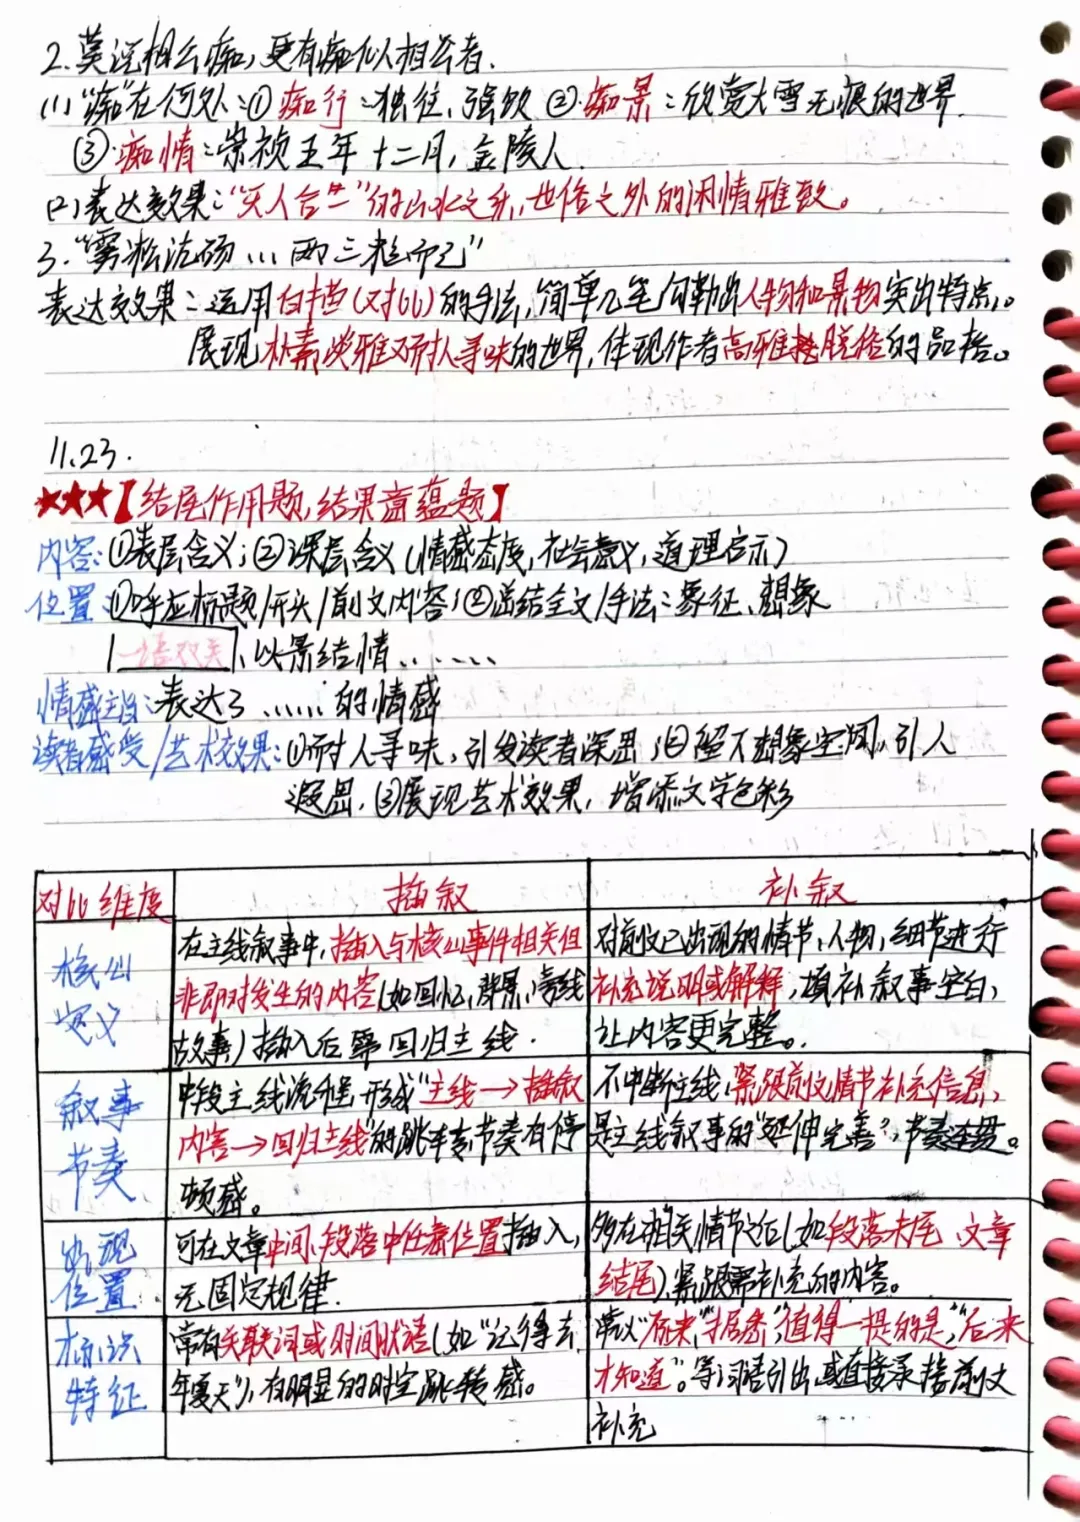 2.莫说相公痴,更有痴似相公者.
(1)"痴"在何处:①痴行:独往,强饮 ②痴景:欣赏大雪无痕的世界.
③痴情:崇祯五年十二月,金陵人
(2)表达效果:"天人合一"的山水之乐,世俗之外的闲情雅致。
3."雾凇沆砀...两三粒而已"
表达效果:运用白描(对比)的手法,简单几笔勾勒出人物和景物突出特点。
展现朴素淡雅又耐人寻味的世界,体现作者高雅脱俗的品格。
11.23.
★★★【结尾作用题,结果意蕴题】
内容:①表层含义;②深层含义(情感态度,社会意义,道理启示)
位置:①呼应标题/开头/前文内容;②总结全文/手法:象征、想象
一语双关、以景结情......
情感主旨:表达了......的情感
读者感受/艺术效果:①耐人寻味,引发读者深思;②留下想象空间,引人
遐思.③展现艺术效果,增添文学色彩
对比维度 插叙 补叙
核心定义
在主线叙事中,插入与核心事件相关但
非即时发生的内容(如回忆,背景,旁线
故事)插入后需回归主线.
对前文已出现的情节、人物,细节进行
补充说明或解释,填补叙事空白,
让内容更完整。
叙事节奏
中段主线流程,形成"主线→插叙
内容→回归主线"的跳转,节奏有停
顿感。
不中断主线,紧跟前文情节补充信息,
是主线叙事的"延伸完善",节奏连贯。
出现位置
可在文章中间、段落中任意位置插入,
无固定规律.
多在相关情节之后(如段落末尾、文章
结尾),紧跟需补充的内容。
标识特征
常有关联词或时间状语(如"记得去
年夏天"),有明显的时空跳转感。
常以"原来","据悉","值得一提的是","后来
才知道"。等词语引出,或直接承接前文
补充